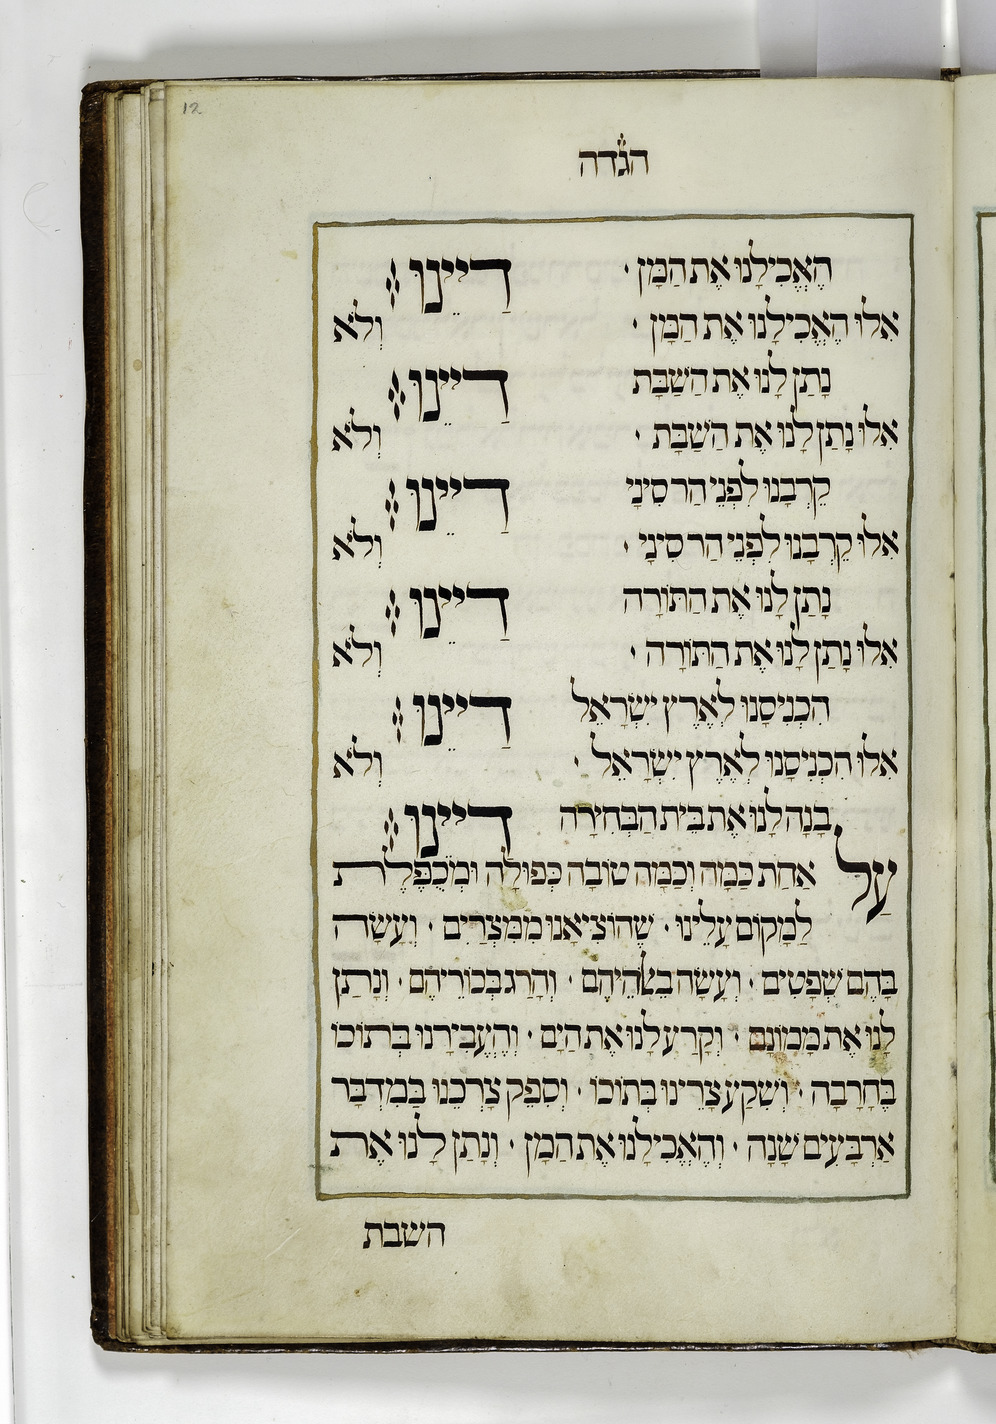 12
הגדה
הֶאֱכִילָנוּ אֶת הַמָּן · דַיֵינוּ
אִלּוּ הֶאֱכִילָנוּ אֶת הַמָּן · וְלֹא
נָתַן לָנוּ אֶת הַשַׁבָּת דַיֵינוּ
אִלּוּ נָתַן לָנוּ אֶת הַשַׁבָּת · וְלֹא
קֵרְבָנוּ לִפְנֵי הַר סִינַי דַיֵינוּ
אִלּוּ קֵרְבָנוּ לִפְנֵי הַר סִינַי · וְלֹא
נָתַן לָנוּ אֶת הַתּוֹרָה דַיֵינוּ
אִלּוּ נָתַן לָנוּ אֶת הַתּוֹרָה · וְלֹא
הִכְנִיסָנוּ לְאֶרֶץ יִשְׂרָאֵל דַיֵינוּ
אִלּוּ הִכְנִיסָנוּ לְאֶרֶץ יִשְׂרָאֵל · וְלֹא
בָנָה לָנוּ אֶת בֵּית הַבְּחִירָה דַיֵינוּ
עַל אַחַת כַּמָּה וְכַמָּה טוֹבָה כְּפוּלָה וּמְכֻפֶּלֶת
לַמָּקוֹם עָלֵינוּ · שֶׁהוֹצִיאָנוּ מִמִּצְרַיִם · וְעָשָׂה
בָהֶם שְׁפָטִים · וְעָשָׂה בֵאלֹהֵיהֶם · וְהָרַג בְּכוֹרֵיהֶם · וְנָתַן
לָנוּ אֶת מָמוֹנָם · וְקָרַע לָנוּ אֶת הַיָּם · וְהֶעֱבִירָנוּ בְּתוֹכוֹ
בֶּחָרָבָה · וְשִׁקַע צָרֵינוּ בְּתוֹכוֹ · וְסִפֵּק צָרְכֵנוּ בַּמִדְבָּר
אַרְבָּעִים שָׁנָה · וְהֶאֱכִילָנוּ אֶת הַמָּן · וְנָתַן לָנוּ אֶת
השבת